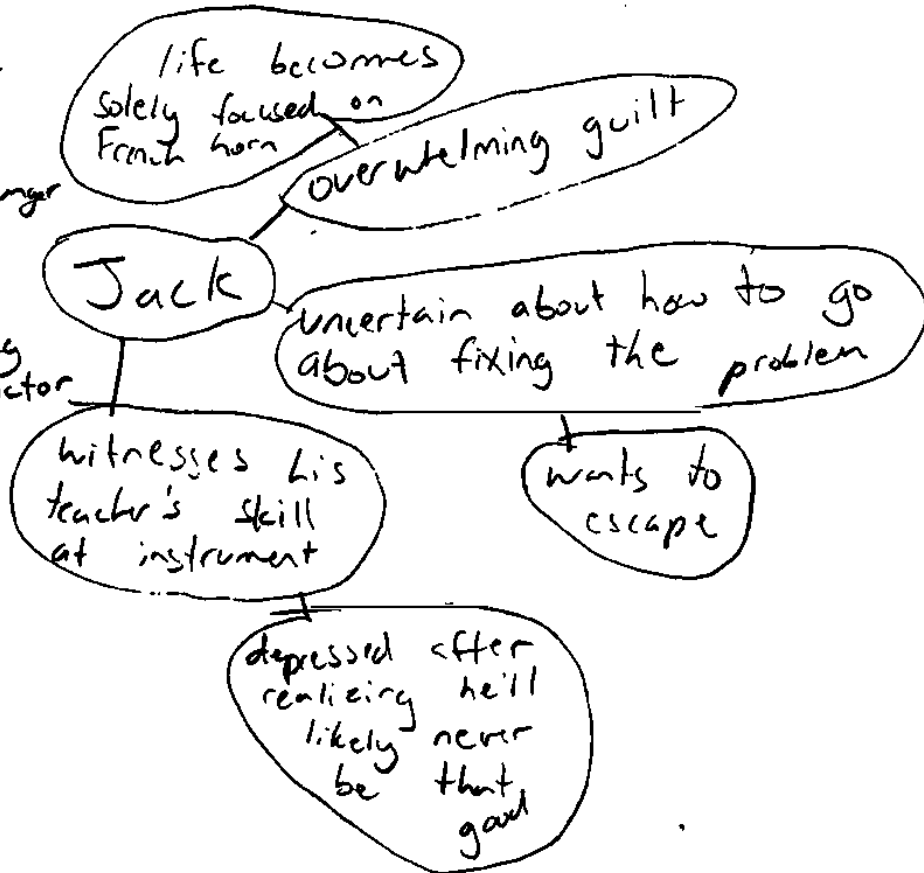 life becomes
solely focused on
French horn
overwhelming guilt
Jack
uncertain about how to go
about fixing the problem
witnesses his
teacher's skill
at instrument
wants to
escape
depressed after
realizing he'll
likely never
be that
good